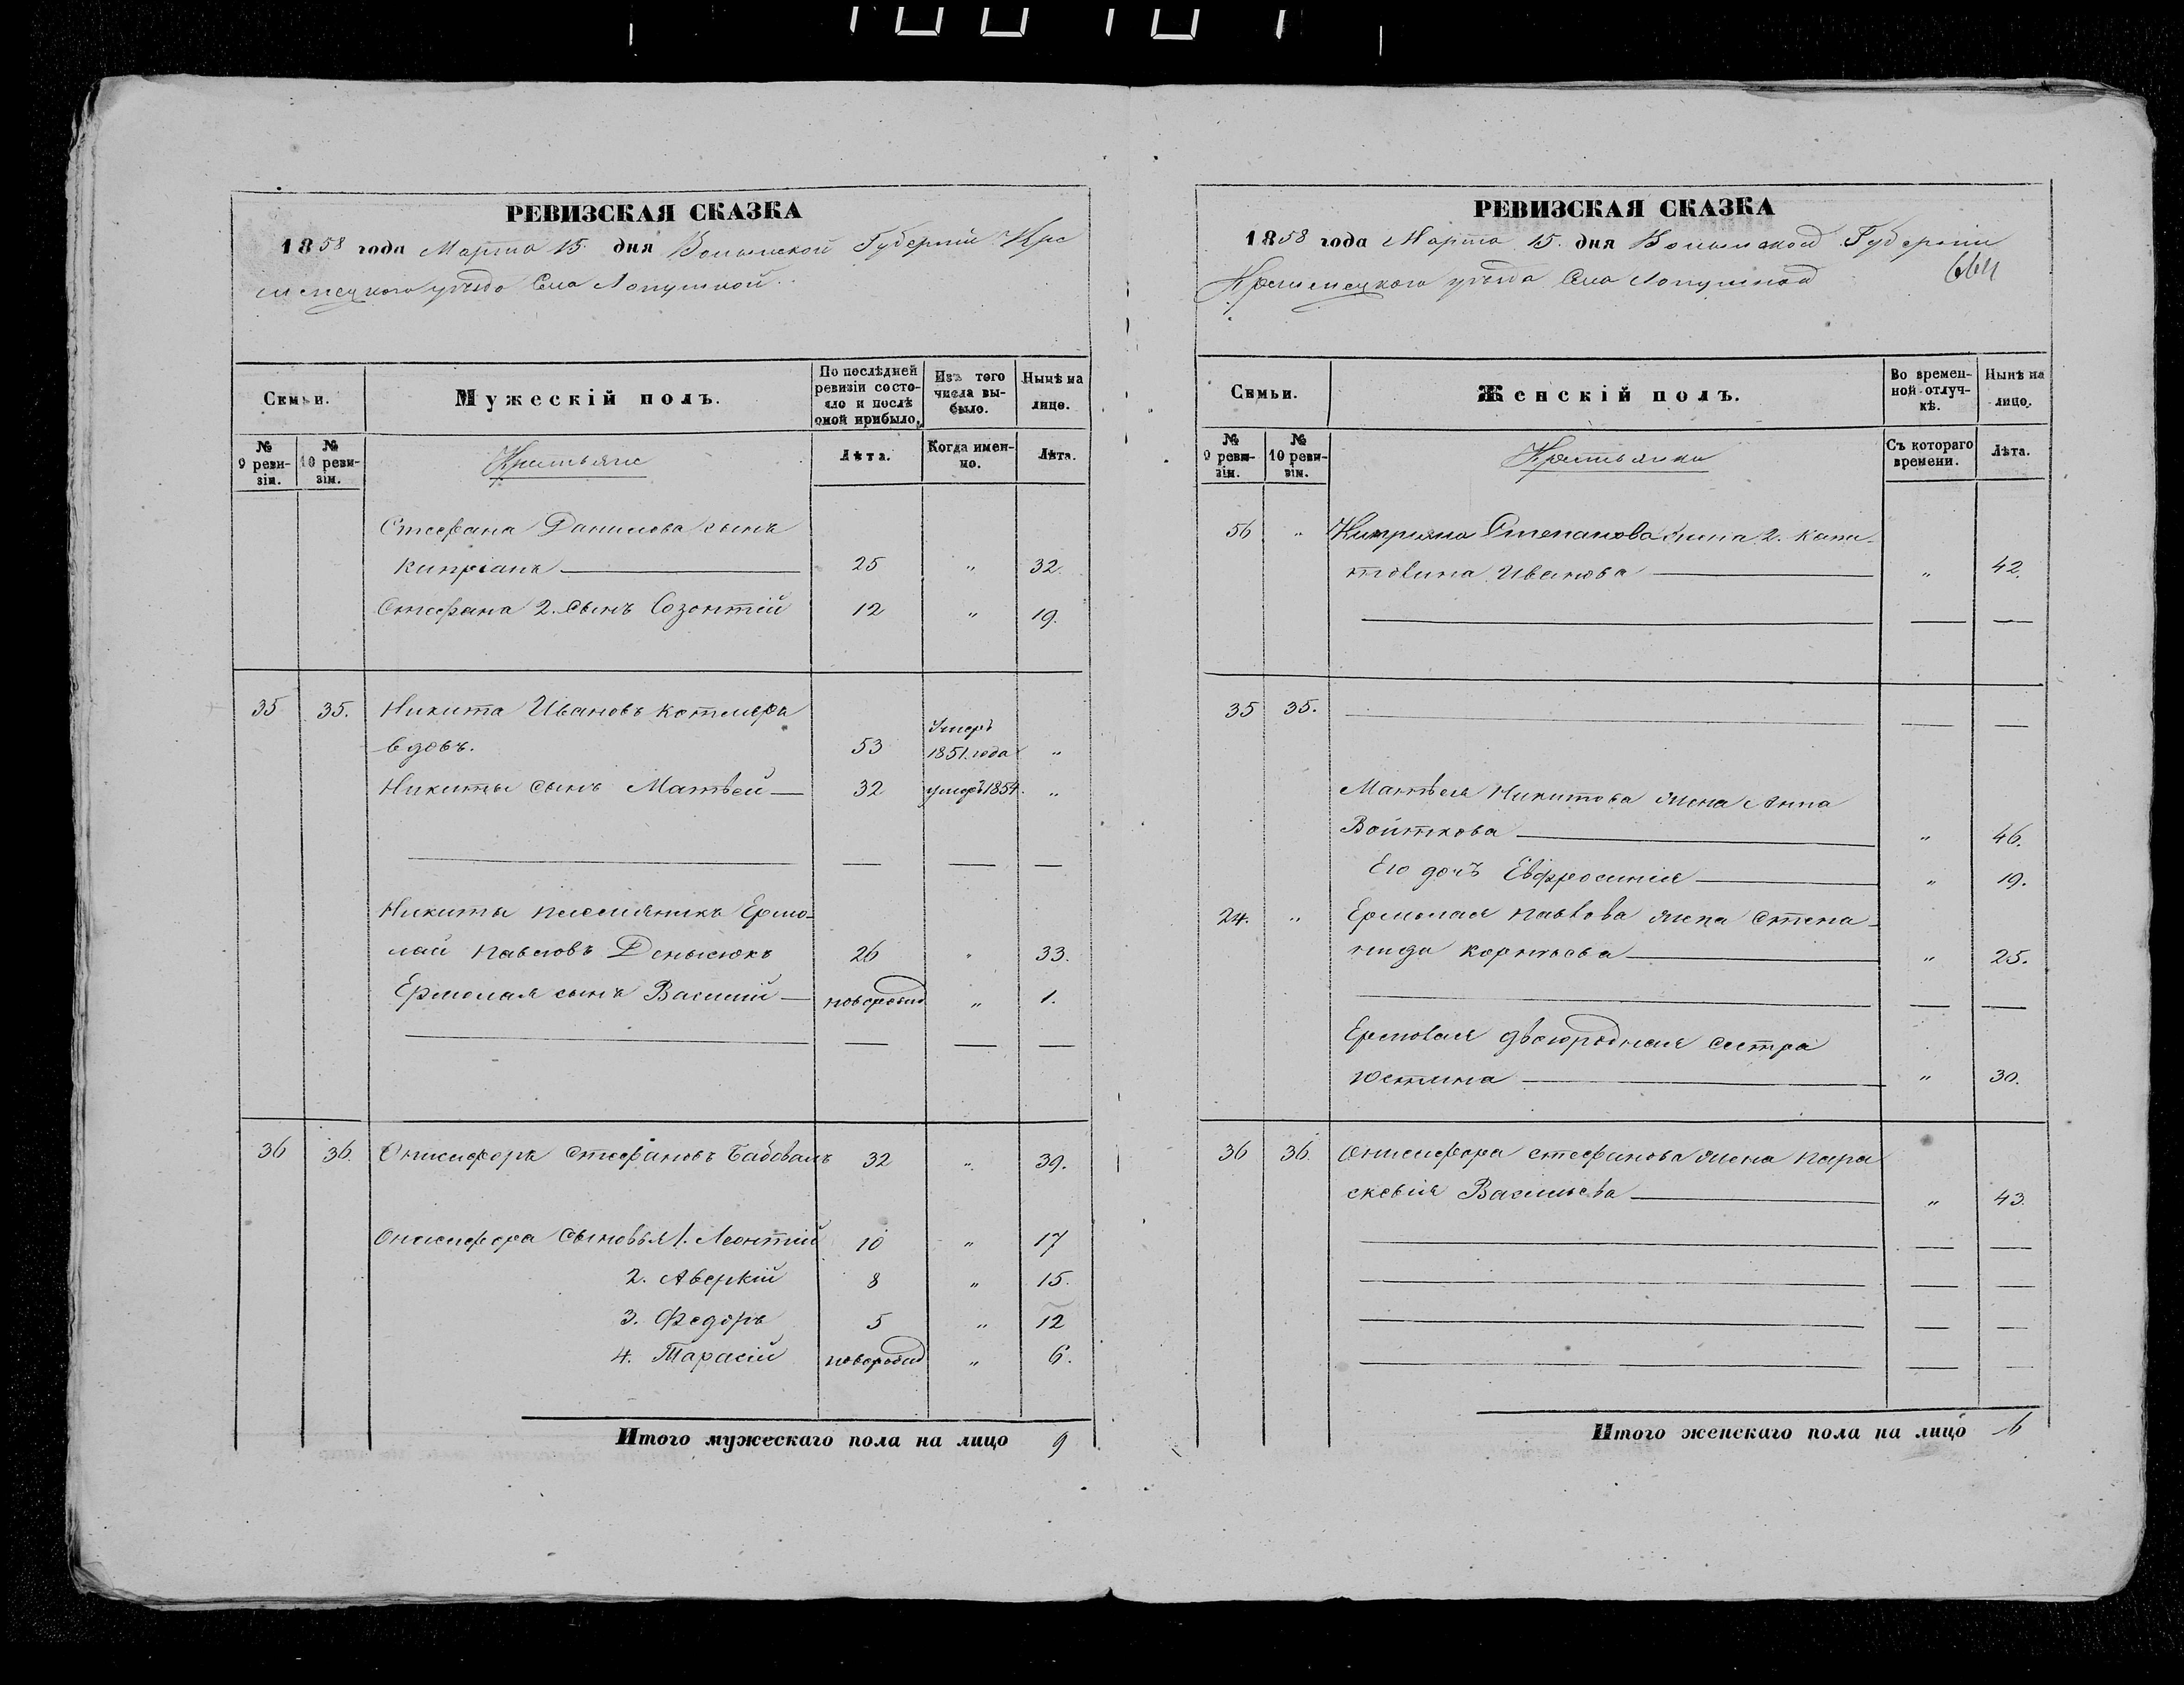 РЕВИЗСКАЯ СКАЗКА
1858 года Марта 15. дня Волынской Губерніи Кре
менецкого уѣзда Села Лопушной.
Семьи.
Мужескій полъ.
По послѣдней ревизіи состояло и послѣ оной прибыло.
Изъ того числа выбыло.
Нынѣ на лицо.
№ 9 ревизіи.
№ 10 ревизіи.
Крестьяне
Лѣта.
Когда именно.
Лѣта.
Стефана Данилова сынъ
Кипріанъ — 25 " 32.
Стефана 2. сынъ Созонтій 12 " 19.
35 35. Никита Ивановъ
вдовъ. 53 Умеръ 1851. года "
Никиты сынъ Матвей — 32 умеръ 1854. "
Никиты племянникъ Ермо-
лай Павловъ Денысюкъ 26 " 33.
Ермолая сынъ Василій — новорожд " 1.
36 36. Онисифоръ Стефановъ 32 " 39.
Онисифора сыновья 1. Леонтій 10 " 17
2. Аверкій 8 " 15.
3. Федоръ 5 " 12
4. Тарасій новорожд " 6.
Итого мужескаго пола на лицо 9
РЕВИЗСКАЯ СКАЗКА
1858 года Марта 15. дня Волынской Губерніи
Кременецкого уѣзда Села Лопушной
664
Семьи.
Женскій полъ.
Во временной отлучкѣ.
Нынѣ на лицо.
№ 9 ревизіи.
№ 10 ревизіи.
Крестьянки
Съ котораго времени.
Лѣта.
56 " Кипріяна Степанова жена 2. Капи-
толина Иванова — " 42.
35 35.
Матвея Никитова жена Анна
Войткова — " 46.
Его дочъ Евфросинія — " 19.
24. " Ермолая Павлова жена Степа-
нида Корнѣева — " 25.
Ермолая двоюродная сестра
Юстина — " 30.
36 36. Онисифора Стефанова жена Пара
скевія Васильева — " 43.
Итого женскаго пола на лицо 6